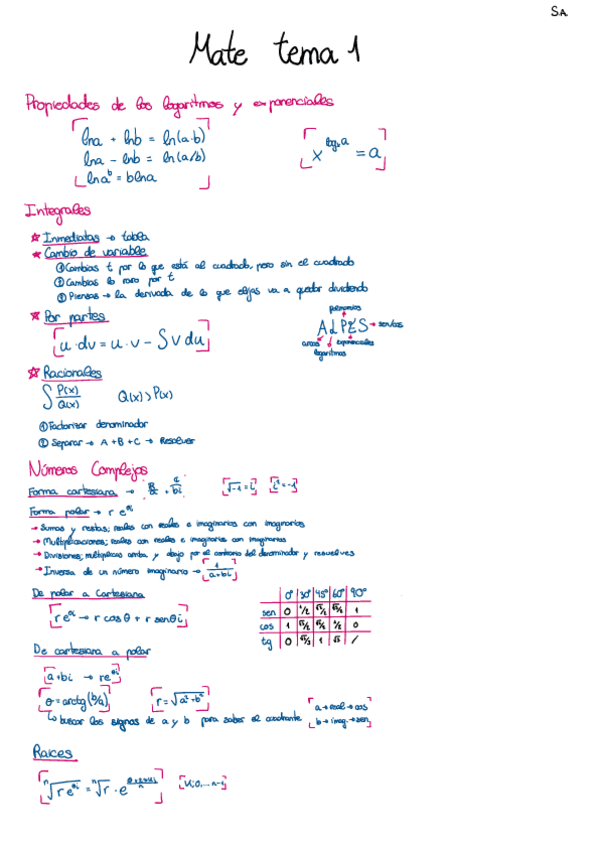 SA
Mate tema 1
Propiedades de los logaritmos y exponenciales
lna + lnb = ln(a·b)
lna - lnb = ln(a/b)
lna^b = blna
x^{logₓa} = a
Integrales
☆ Inmediatas → tabla
★ Cambio de variable
① Cambias t por lo que está al cuadrado, pero sin el cuadrado
② Cambias lo raro por t
③ Piensas → la derivada de lo que elijas va a quedar dividiendo
☆ Por partes
∫u·dv = u·v - ∫v du
polinomios
ALPES → sen/cos
arcos exponenciales
logaritmos
☆ Racionales
∫ P(x)/Q(x) Q(x) > P(x)
① Factorizar denominador
② Separar → A+B+C → Resolver
Números Complejos
Forma cartesiana → + bi √-1 = i i² = -1
Forma polar → r e^{θi}
→ Sumas y restas; reales con reales e imaginarios con imaginarios
→ Multiplicaciones; reales con reales e imaginarios con imaginarios
→ Divisiones; multiplicas arriba y abajo por el contrario del denominador y resuelves
→ Inversa de un número imaginario → 1/(a+bi)
De polar a Cartesiana
re^{θi} → r cosθ + r senθi
0° 30° 45° 60° 90°
sen 0 1/2 √2/2 √3/2 1
cos 1 √3/2 √2/2 1/2 0
tg 0 √3/3 1 √3 /
De cartesiana a polar
a+bi → re^{θi}
θ = arctg(b/a) r = √a²+b²
↳ buscar los signos de a y b para saber el cuadrante
a → real → cos
b → imag → sen
Raíces
ⁿ√re^{θi} = ⁿ√r · e^{(θ+2πk)i/n} K:0,... n-1